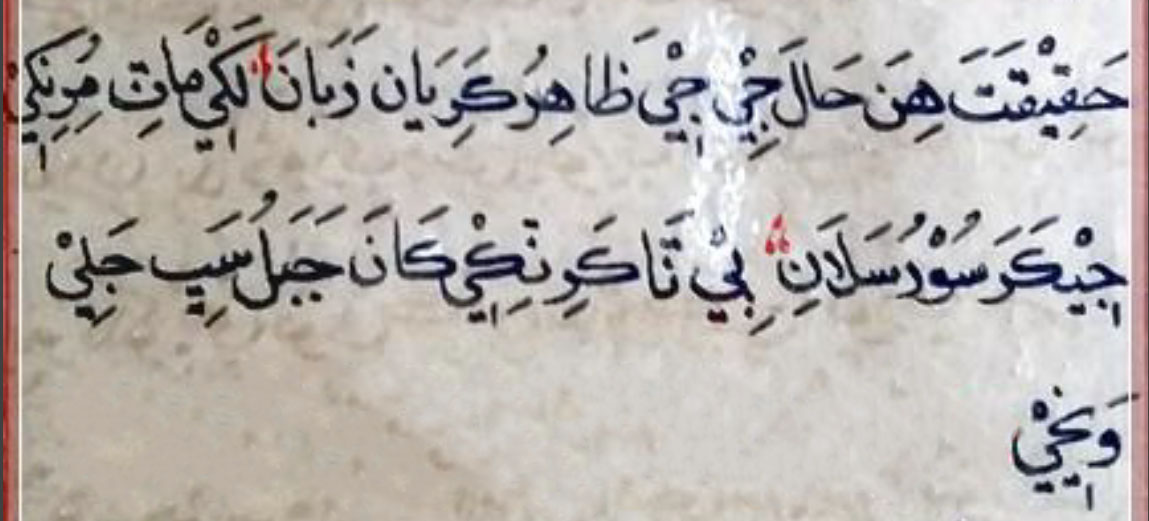 حَقِيْقَتَ هِنَ حَالَ جِيْ جِيْ ظَاهِرُ كَرِيَان ذَبَانَ لَكِيْ مَاتِ مِرُنِكِيْ
جِيْكَرَ سُوْرُ سَلَانِ بِيْ تَا كَرِ نِكِيْ كَانَ جَبَلُ سَيِبِ جَلِيْ